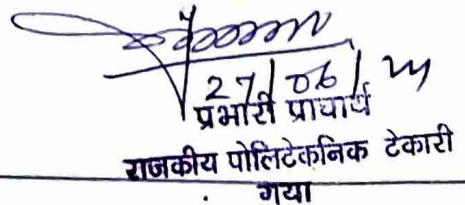 27/06/24
प्रभारी प्राचार्य
राजकीय पोलिटेकनिक टेकारी
गया